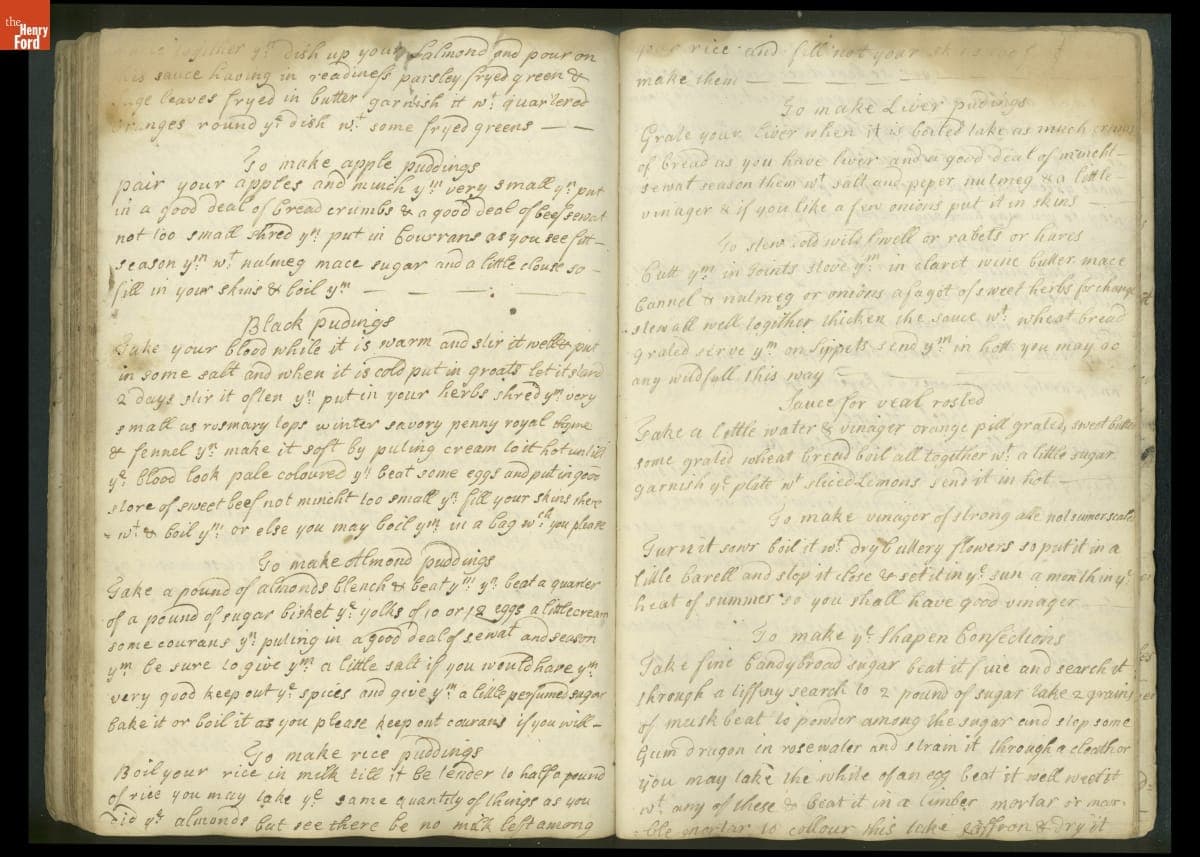 the
Henry
Ford
together yͤ dish up your Salmond and pour on
this sauce having in readiness parsley fryed green &
sage leaves fryed in butter garnish it wͭ quartered
oranges round yͤ dish wͭ some fryed greens — —
To make apple puddings
pair your apples and much yͫ very small yͫ put
in a good deal of bread crumbs & a good deal of beef sewat
not too small shred yͫ put in Courrans as you see fitt —
season yͫ wͭ nutmeg mace sugar and a little cloue so —
fill in your skins & boil yͫ — — — —
Black pudings
Take your blood while it is warm and stir it well & put
in some salt and when it is cold put in groats let it stand
2 days stir it often yͫ put in your herbs shred yͫ very
small as rosmary tops winter savory penny royal thyme
& fennel yͫ make it soft by puting cream to it hot untill
yͤ blood look pale coloured yͫ beat some eggs and put in good
store of sweet beef not mincht too small yͫ fill your skins there
wͭ & boil yͫ or else you may boil yͫ in a bag wᶜʰ you please
To make Almond puddings
Take a pound of almonds blench & beat yͫ yͫ beat a quarter
of a pound of sugar bisket yͤ yolks of 10 or 12 eggs a little cream
some courans yͫ puting in a good deal of sewat and season
yͫ be sure to give yͫ a little salt if you would have yͫ
very good keep out yͤ spices and give yͫ a little perfumed sugar
bake it or boil it as you please keep out courans if you will —
To make rice puddings
Boil your rice in milk till it be tender to half a pound
of rice you may take yͤ same quantity of things as you
did yͤ almonds but see there be no milk left among
your rice and fill not your
make them — — —
To make Liver pudings
Grate your liver when it is boiled take as much crums
of bread as you have liver and a good deal of mincht
sewat season them wͭ salt and peper nutmeg & a little
vinager & if you like a few onions put it in skins — —
To stew cold wild fwell or rabets or hares
Cutt yͫ in Joints stove yͫ in claret wine butter mace
Cannel & nutmeg or onions a fagot of sweet herbs for change
stew all well together thicken the sauce wͭ wheat bread
grated serve yͫ on sippets send yͫ in hott you may do
any wildfull this way — — —
Sauce for veal rosted
Take a little water & vinager orange pill grated, sweet butter
some grated wheat bread boil all together wͭ a little sugar
garnish yͤ platt wͭ sliced Limons send it in hot —
To make vinager of strong ale not sumer scald
Turn it sowr boil it wͭ dry buttery flowers so put it in a
little barell and stop it close & set it in yͤ sun a month in yͤ
heat of summer so you shall have good vinager
To make yͤ shapen Confections
Take fine Candybroad sugar beat it fine and search it
through a tiffiny search to 2 pound of sugar take 2 grains
of musk beat to powder among the sugar and stop some
Gum dragon in rosewater and strain it through a cloath or
you may take the white of an egg beat it well weet it
wͭ any of these & beat it in a timber mortar or mar-
ble mortar to collour this take saffron & dry it